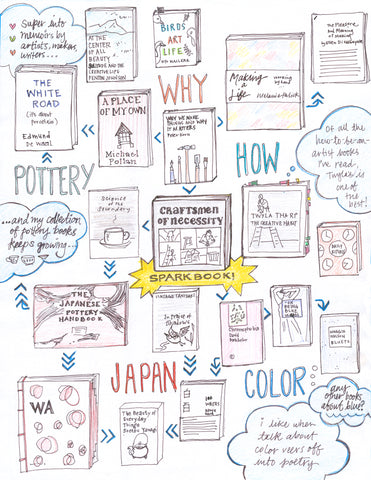 Super into
memoirs by
artists, makers,
writers...
AT THE
CENTER OF
ALL BEAUTY
SOLITUDE AND THE
CREATIVE LIFE
FENTON JOHNSON
BIRDS
ART
LIFE
KYO MACLEAR
THE WHITE
ROAD
Edmund
De Waal
A PLACE
OF MY OWN
Michael
Pollan
WHY
WHY WE MAKE
THINGS AND WHY
IT MATTERS
Peter Korn
Making
a
Life
working by hand
Melanie Falick
POTTERY
HOW
Of all the
how-to-be-an-
artist books
I've read,
Twyla's is
one of
the best!
...and my collection
of pottery books
keeps growing...
Craftsmen
of necessity
TWYLA THARP
THE CREATIVE HABIT
SPARK BOOK!
THE
JAPANESE
POTTERY
HANDBOOK
In Praise
of
Shadows
JAPAN
COLOR
WA
The Beauty of
Everyday
Things
Soetsu Yanagi
any
other books
about blue?
i like when
talk about
color veers off
into poetry